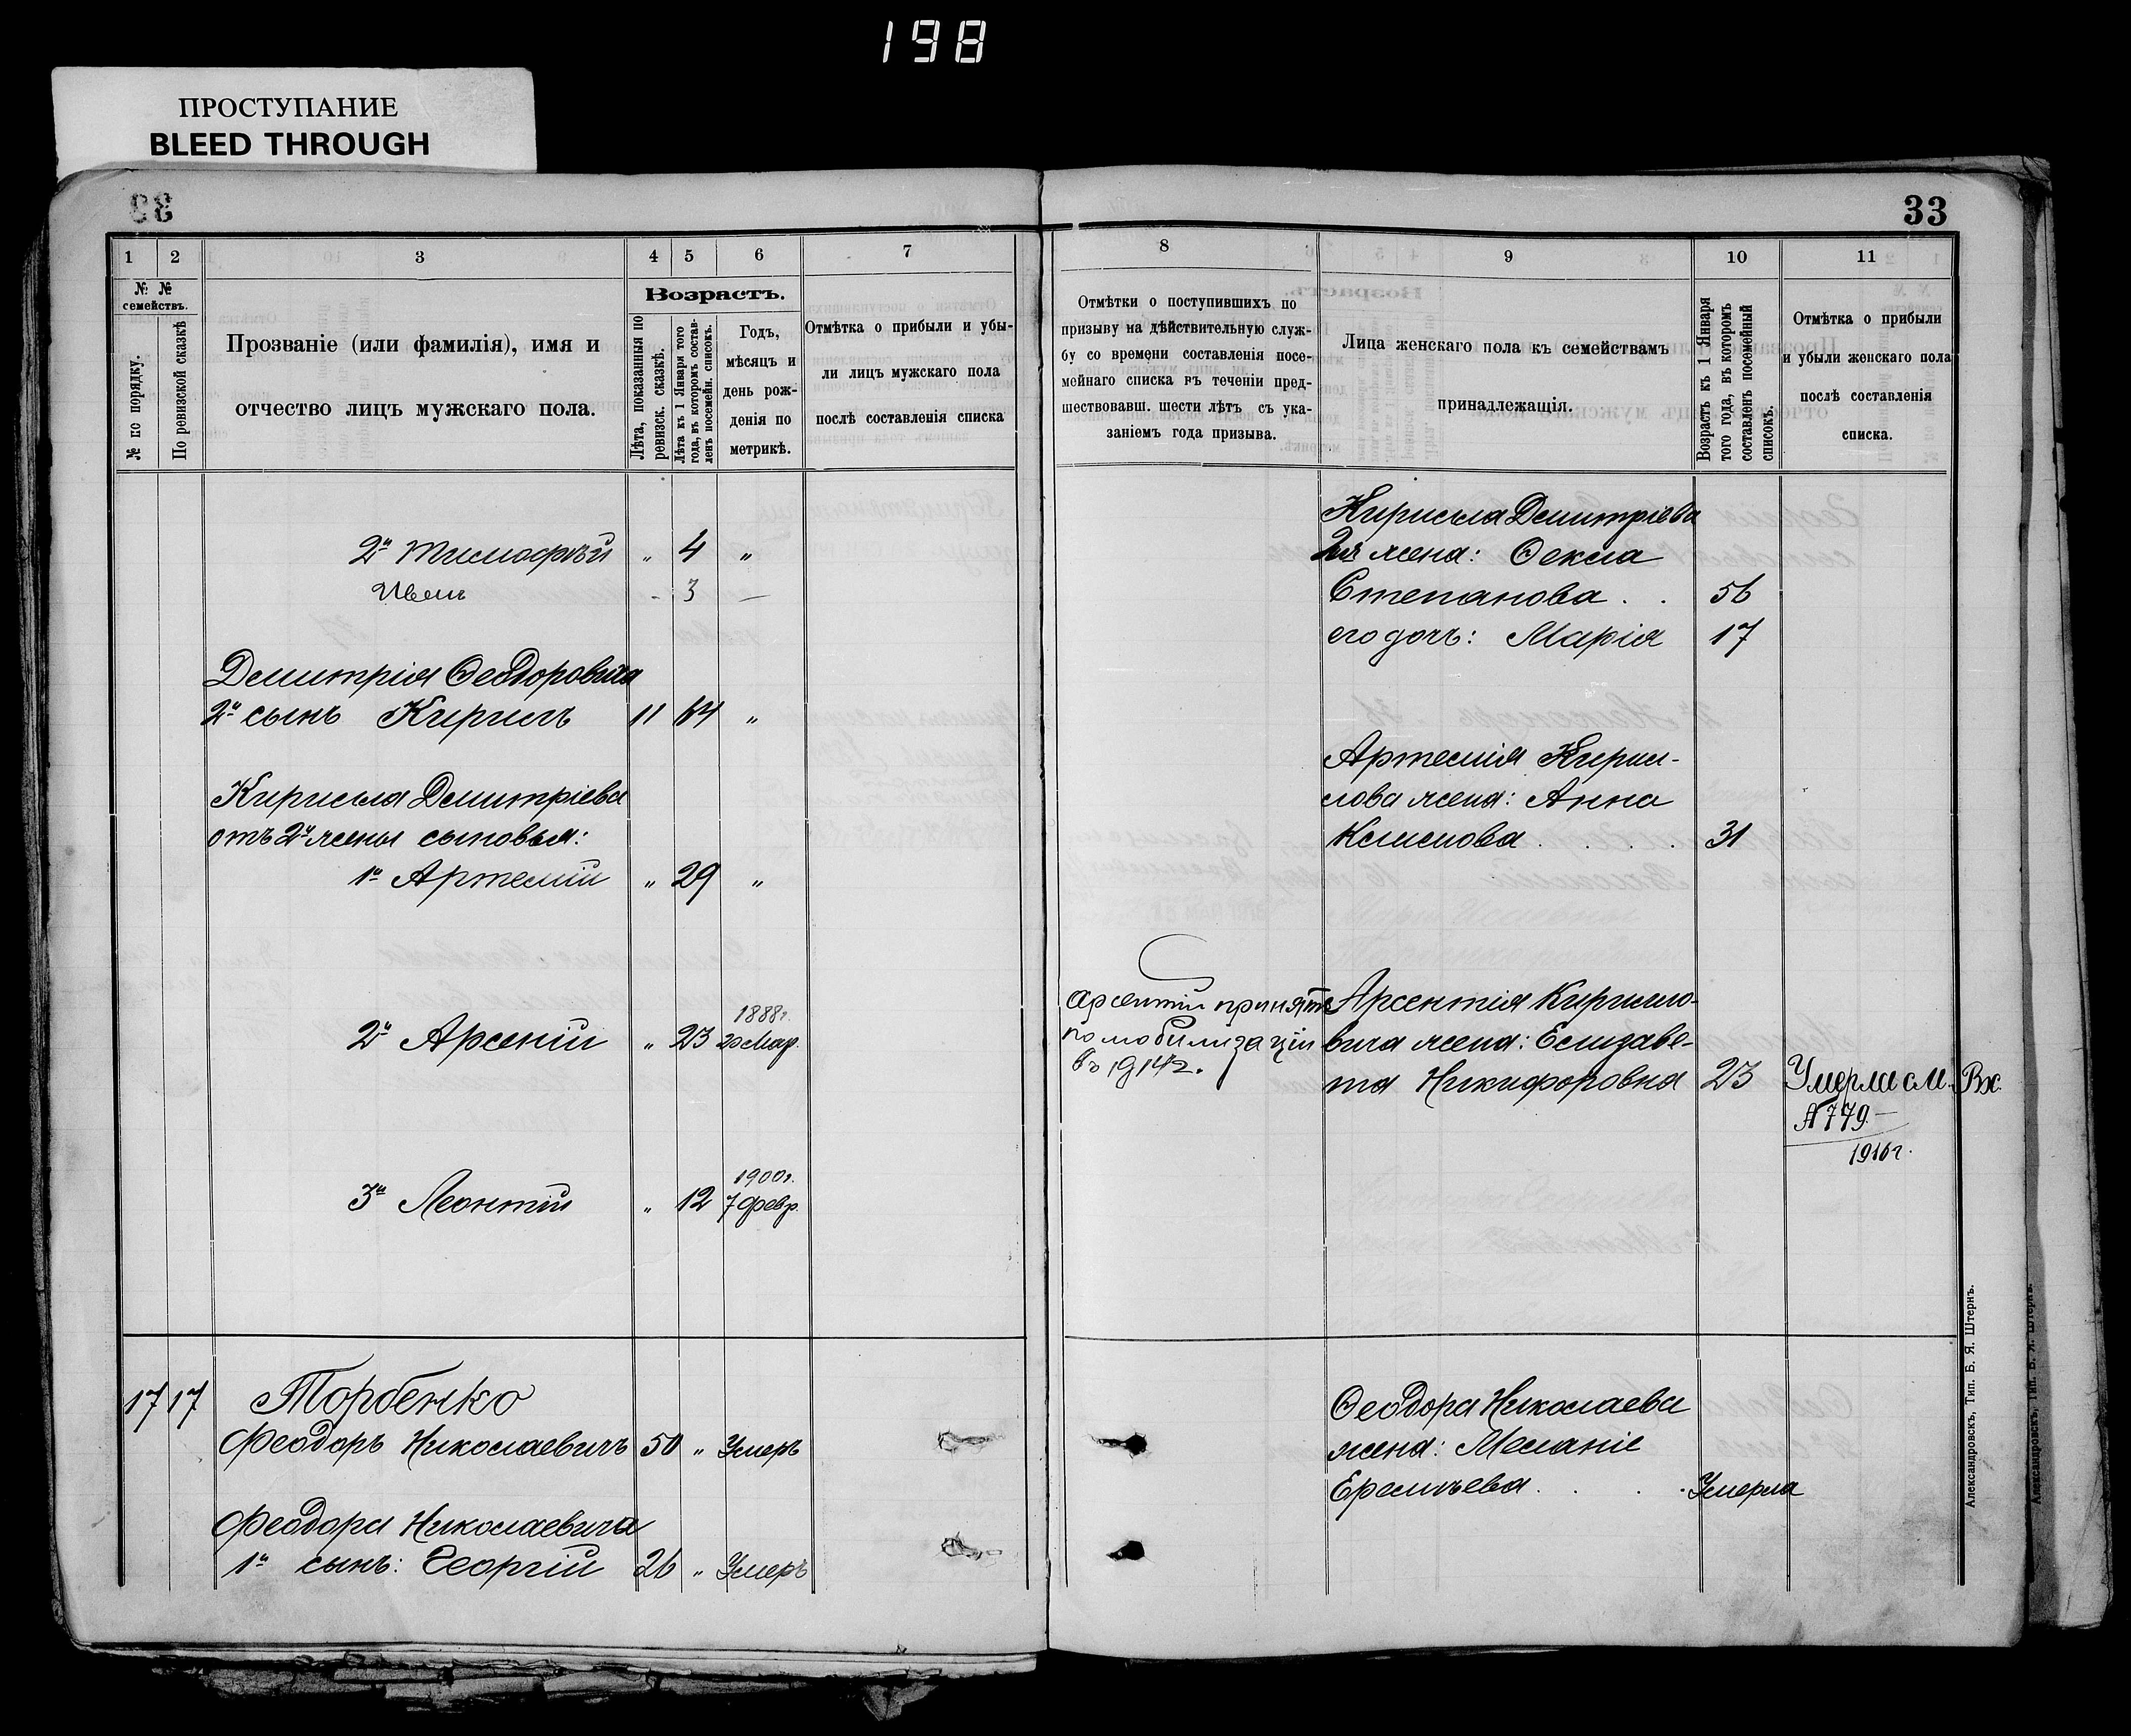 198
ПРОСТУПАНИЕ
BLEED THROUGH
33
33
1 2 3 4 5 6 7
№ № семействъ.
№ по порядку.
По ревизской сказкѣ
Прозваніе (или фамилія), имя и
отчество лицъ мужскаго пола.
Возрастъ.
Лѣта, показанныя по
ревизск. сказкѣ.
Лѣта къ 1 Января того
года, въ которомъ состав-
ленъ посемейн. списокъ.
Годъ,
мѣсяцъ и
день рож-
денія по
метрикѣ.
Отмѣтка о прибыли и убы-
ли лицъ мужскаго пола
послѣ составленія списка
2й Тимофѣй „ 4 „
Иванъ - 3 —
Димитрія Ѳеодоровича
2й сынъ Кирилъ 11 64 „
Кирилла Димитріева
отъ 2й жены сыновья:
1й Артемій „ 29 „
1888г.
2й Арсеній „ 23 20 Мар.
1900г.
3й Леонтій „ 12 7 февр.
17 17 Торбенко
Феодоръ Николаевичъ 50 „ Умеръ
Феодора Николаевича
1й сынъ: Георгій 26 „ Умеръ
8 9 10 11
Отмѣтки о поступившихъ по
призыву на дѣйствительную служ-
бу со времени составленія посе-
мейнаго списка въ теченіи пред-
шествовавш. шести лѣтъ съ ука-
заніемъ года призыва.
Лица женскаго пола къ семействамъ
принадлежащія.
Возрастъ къ 1 Января
того года, въ которомъ
составленъ посемейный
списокъ.
Отмѣтка о прибыли
и убыли женскаго пола
послѣ составленія
списка.
Кирилла Димитріева
2я жена: Ѳекла
Степанова . . 56
его дочь: Марія 17
Артемія Кирил-
лова жена: Анна
Климова . . . . 31
Арсентій принятъ
по мобилизаціи
въ 1914г.
Арсентія Кирилло-
вича жена: Елизаве-
та Никифоровна 23 Умерла см. Вх.
№ 779
1916г.
Ѳеодора Николаева
жена: Меланіе
Еремѣева . . . Умерла
Александровскъ, Тип. Б. Я. Штернъ.
Александровскъ, Тип. Б. Я. Штернъ.